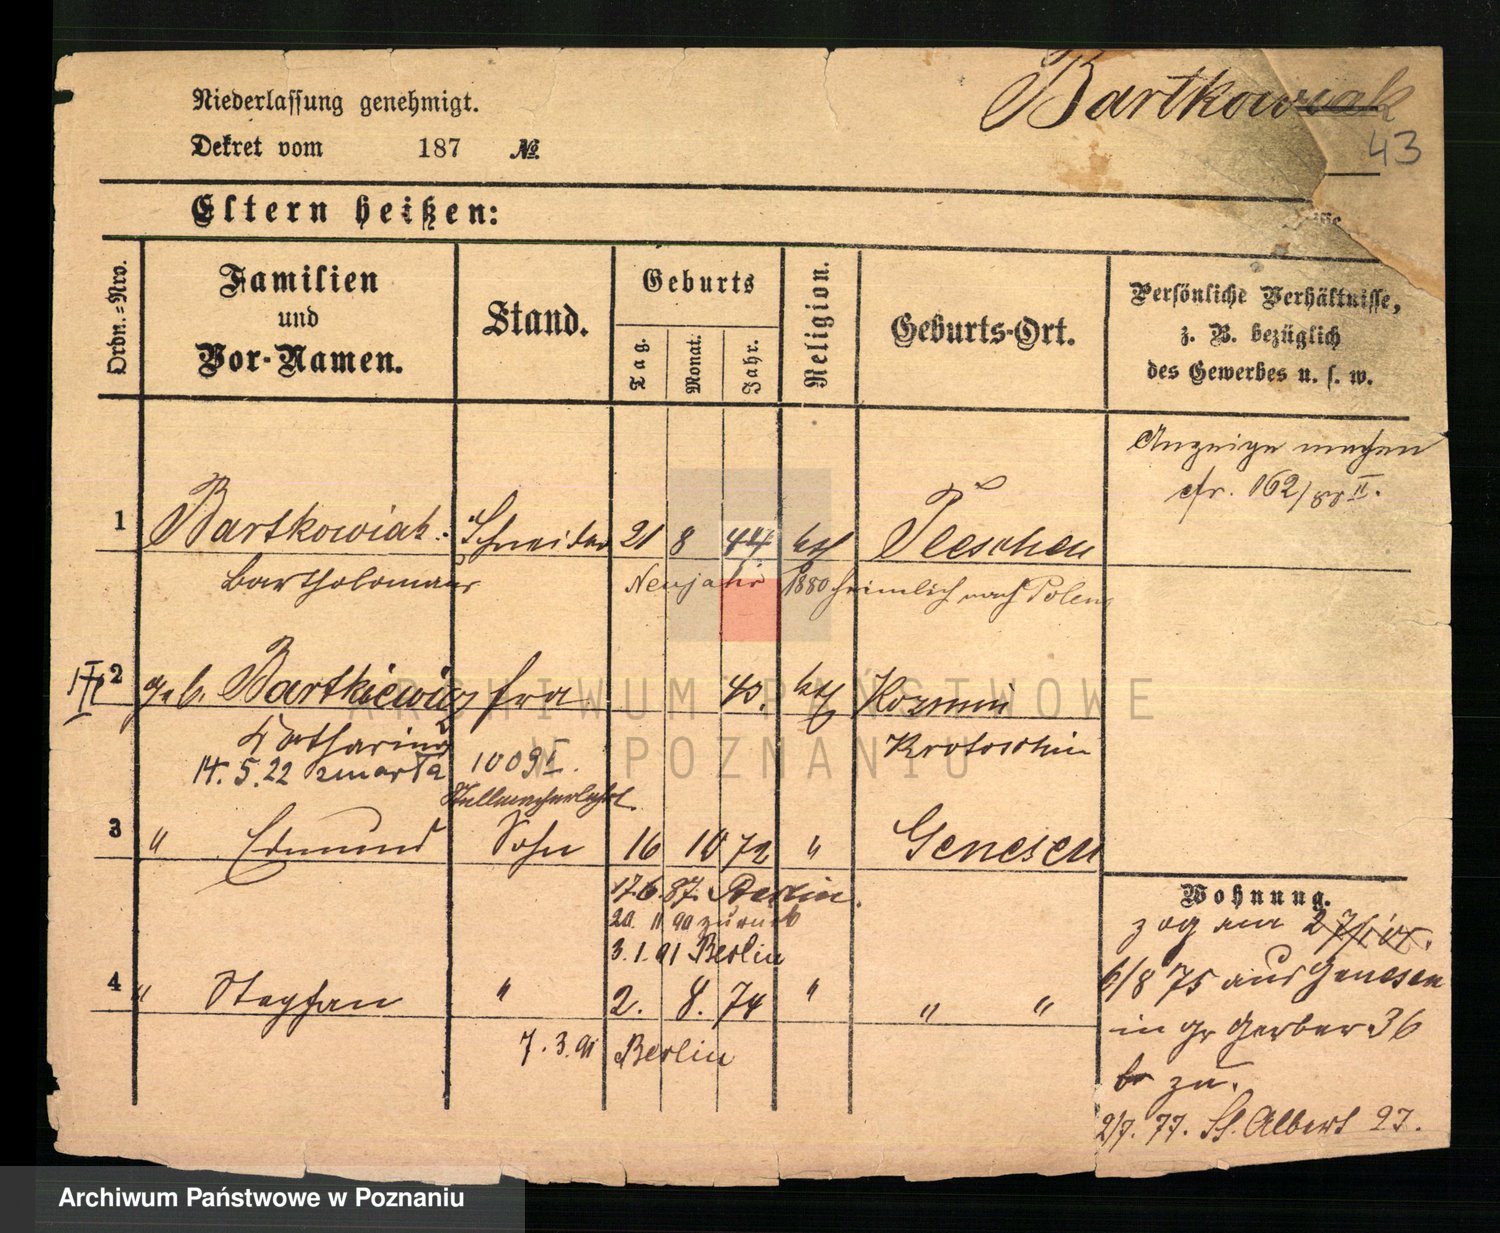 Niederlassung genehmigt.
Bartkowiak
43
Dekret vom 187 №.
Eltern heißen:
Ordn.=Nro.
Familien
und
Vor-Namen.
Stand.
Geburts
Tag.
Monat.
Jahr.
Religion.
Geburts-Ort.
Persönliche Verhältnisse,
z. B. bezüglich
des Gewerbes u. s. w.
Anzeige machen
cfr. 162/88 II.
1 Bartkowiak. Schneider 21 8 44 kth Pleschen
Bartholomaus Neujahr 1880 heimlich nach Polen
2 geb. Bartkiewicz fra 45. kth Kozmin
Katharina Krotoschin
14.5.22 zmarła 1009 I.
3 " Edmund Sohn 16 10 72 " Genesen
17.6.87. Berlin.
20. 11 90 zurück
3.1.91 Berlin
4 " Stephan " 2. 8. 74 " " "
7.3.91 Berlin
Wohnung.
zog am
6/8 75 aus Genesen
in gr Gerber 36
zu.
2/7. 77. St. Albert 27.
ARCHIWUM PAŃSTWOWE
W POZNANIU
Archiwum Państwowe w Poznaniu